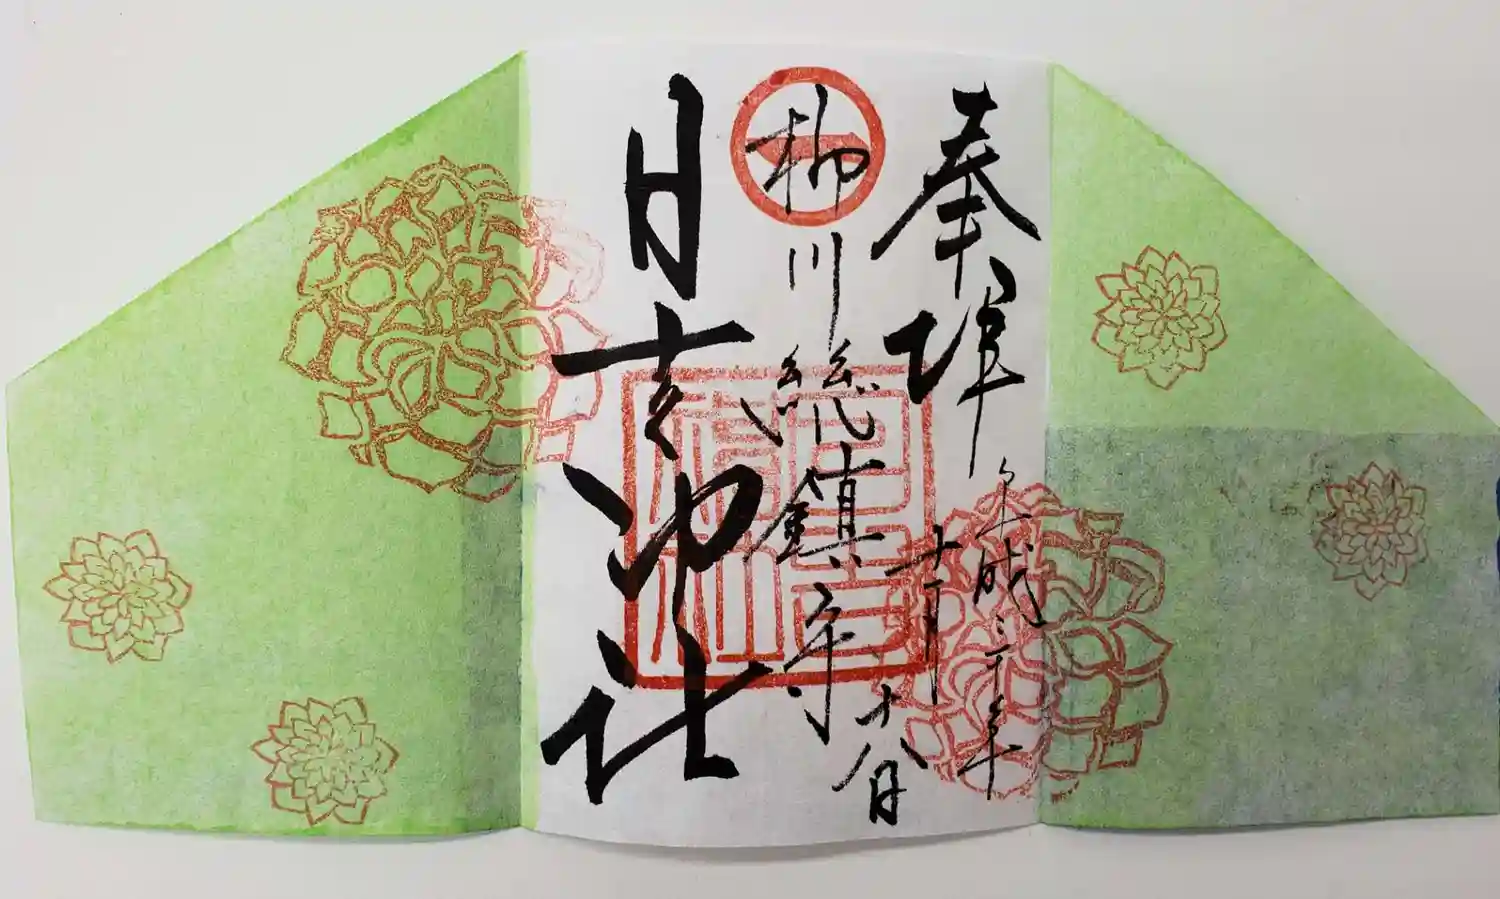 奉拝
平成三十年
十一月
十八日
柳川総鎮守
日吉神社